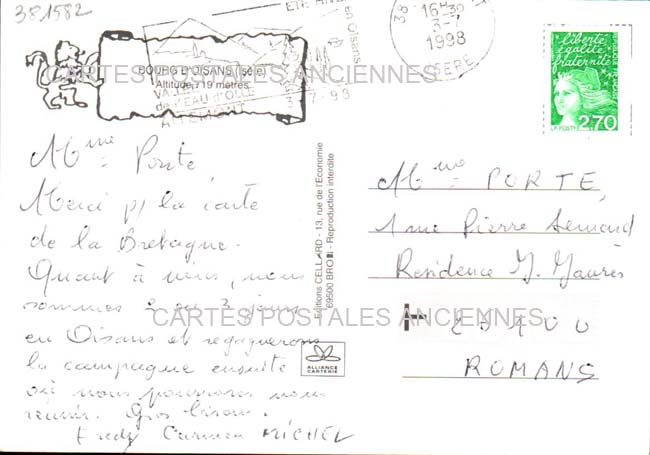 381582
16H30
3-7
1998
ISERE
liberté
égalité
fraternité
LA POSTE 2,70
BOURG D'OISANS (Isère)
Altitude 719 mètres
VALLEE
de L'EAU d'OLLE
ALLEMONT
CARTES POSTALES ANCIENNES
Mme Porte,
Merci p/ la carte
de la Bretagne.
Quant à nous, nous
sommes 2 ou 3 jours
en Oisans et regagnerons
la campagne ensuite
où nous pourrons nous
réunir. Gros bisous.
Fredy Carmen MICHEL
Editions CELLARD - 13, rue de l'Economie
69500 BRON - Reproduction interdite
ALLIANCE
CARTERIE
Mme PORTE,
1 rue Pierre Semard
Résidence J. Jaurès
CARTES POSTALES ANCIENNES
26100
ROMANS